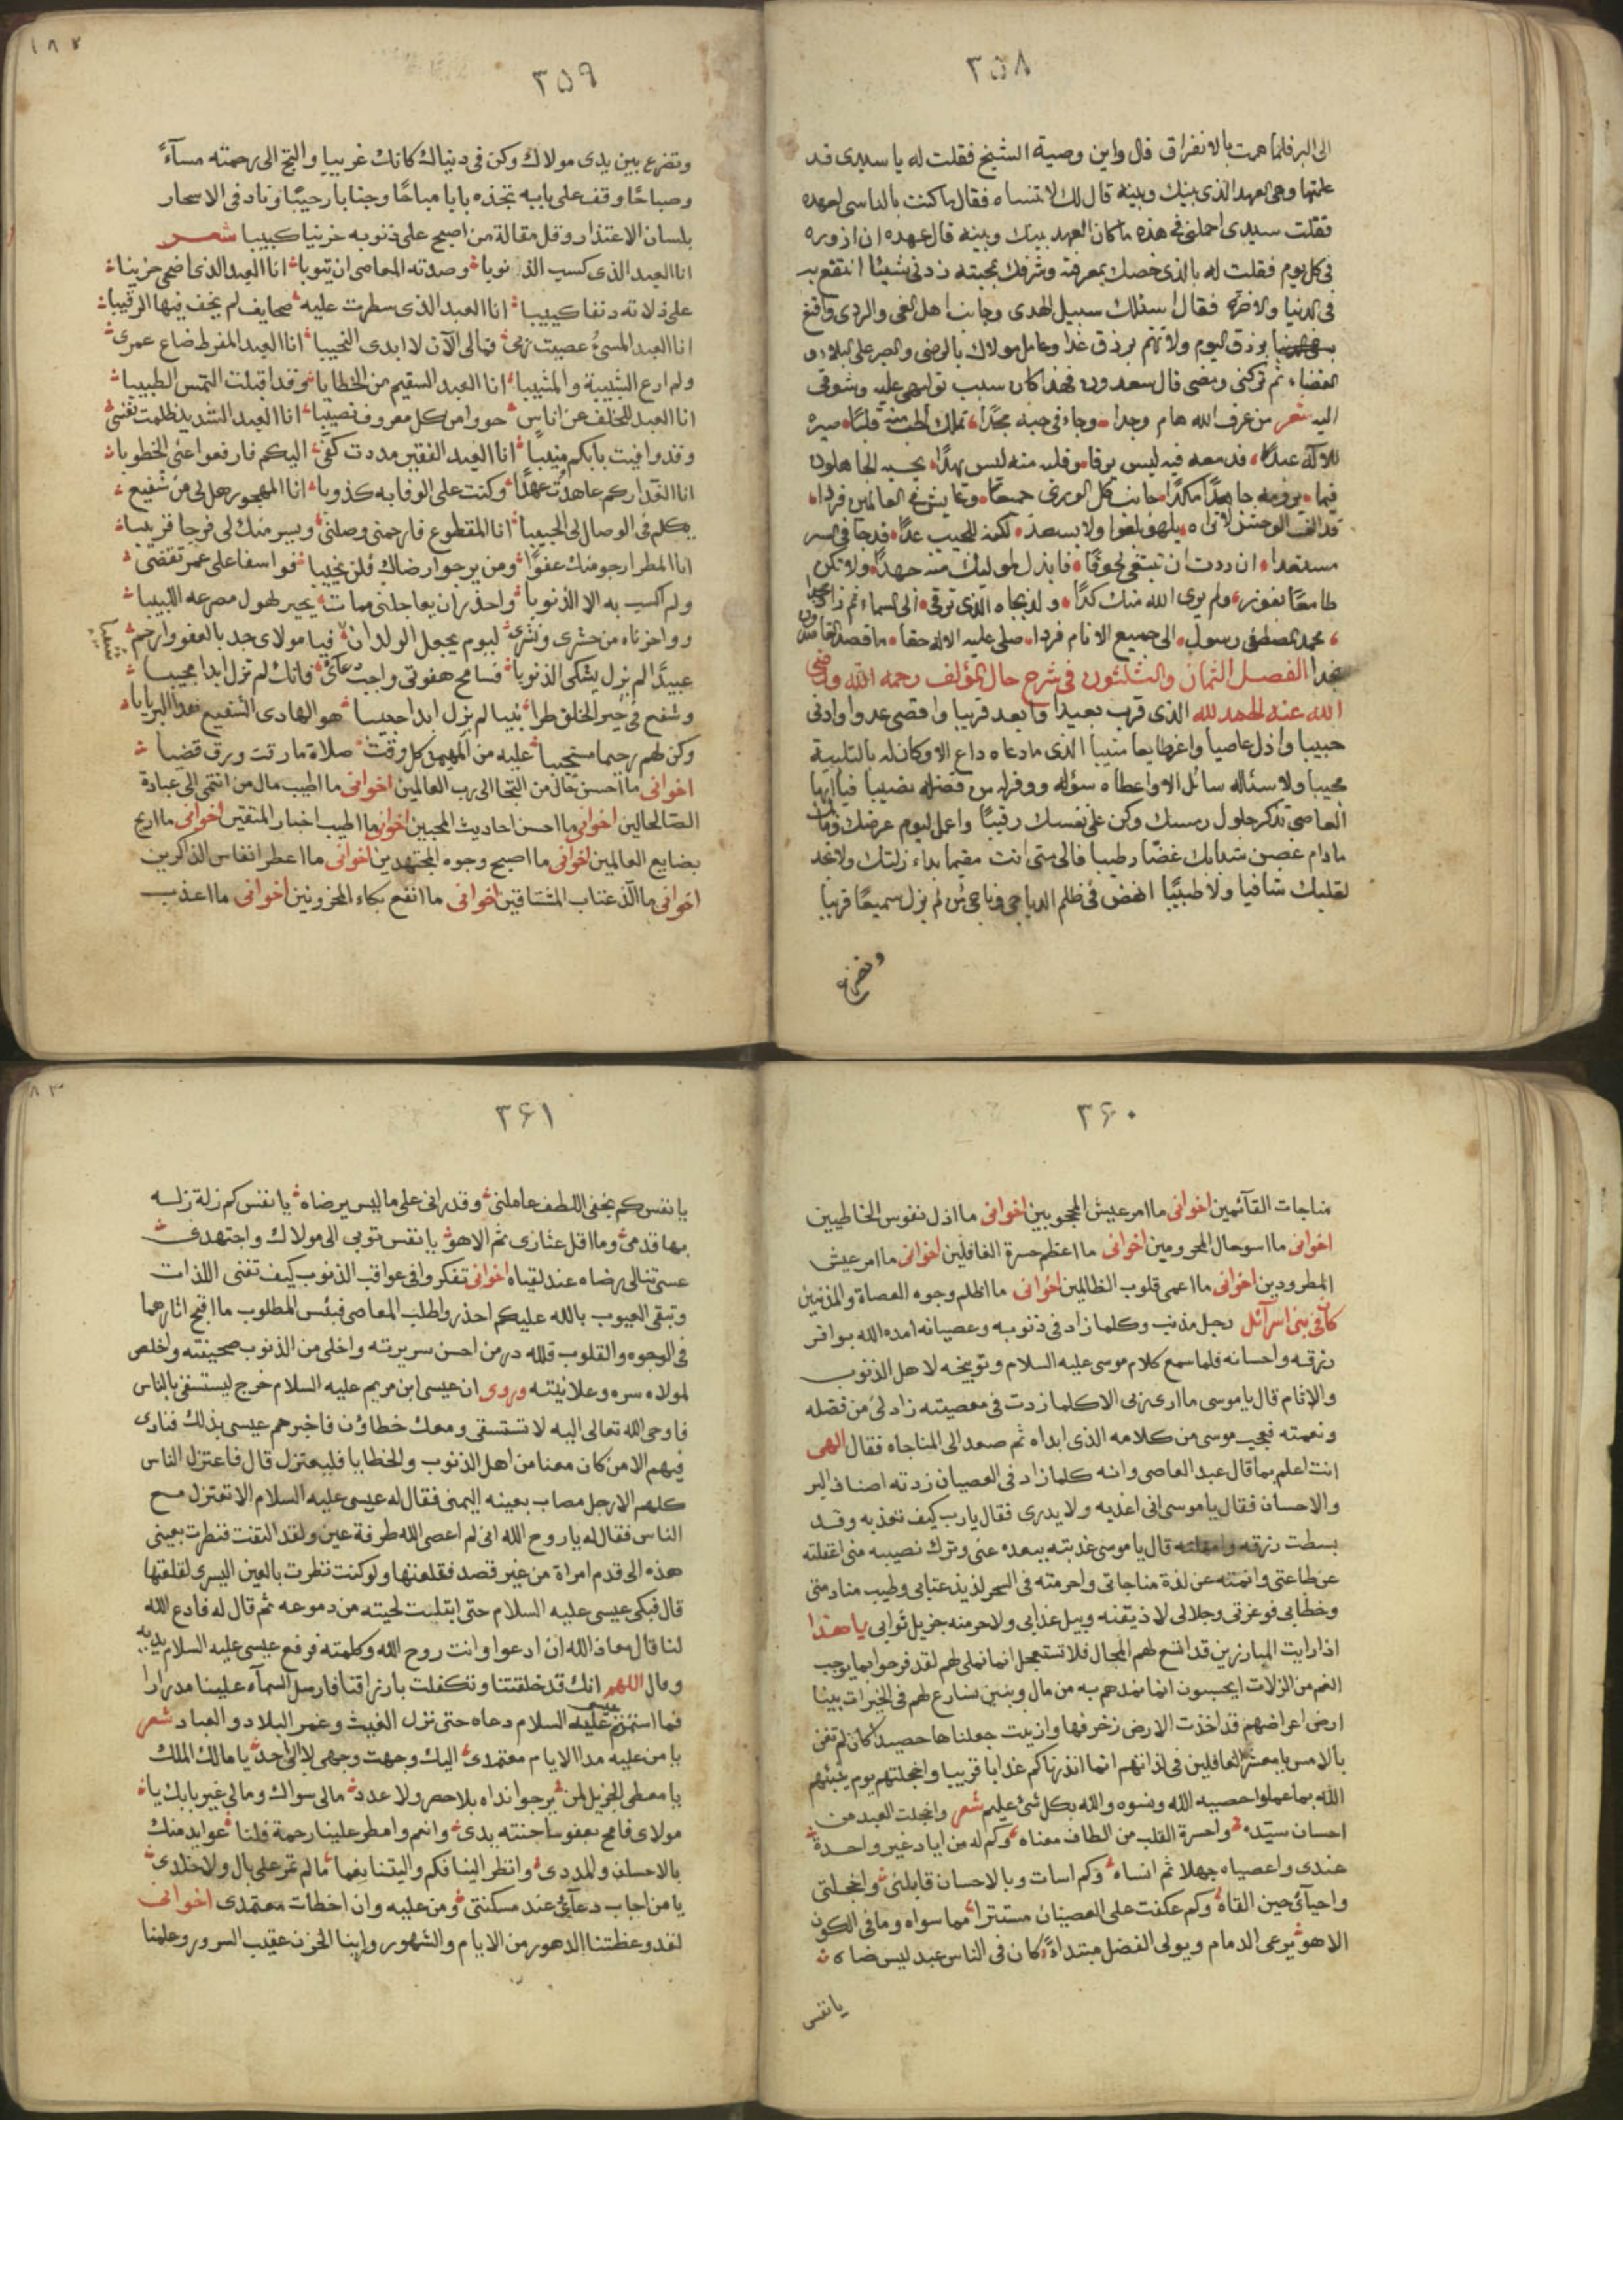 ٣٥٨
الى البر فلما همت بالانفراق قال واين وصية الشيخ فقلت له يا سيدى قد
علمتها وهى العهد الذى بينك وبينه قال لك لا تنساه فقال ما كنت بالناسى لعهده
فقلت سيدى احملنى فى هذه ما كان العهد بينك وبينه قال عهده ان ازوره
فى كل يوم فقلت له بالذى خصك بمعرفته وشرفك بمحبته زدنى شيئا انتفع به
فى الدنيا والاخرة فقال اسلك سبيل الهدى وجانب اهل الغى والردى واقنع
برزق اليوم ولا تهتم برزق غدا وعامل مولاك بالرضى والصبر على البلاء و
القضاء ثم تركنى ومضى قال سعدون فهذا كان سبب تولهى عليه وشوقى
اليه شعر من عرف الله هام وجدا وجاء فى حبه مجدا تملك الحب منه قلبا صيره
للاله عبدا
قد الف الوحش لا تراه يلهو بلغوا ولا بسعد لكنه للحبيب عدا
مستعدا ان ردت ان تبتغى لحوقا فابذل لموليك منه جهدا ولا تكن
طامعا بفوز ولم يرى الله منك كدا ولذ بجاه الذى ترقى الى السماء ثم زاد مجدا
محمد المصطفى رسول الى جميع الانام فردا صلى عليه الاله حقا ما قصد القاصدون
نجدا الفصل الثمان والثلثون فى شرح حال المؤلف رحمه الله ورضى
الله عنه الحمد لله الذى قرب بعيدا وابعد قريبا واقصى عدوا وادنى
حبيبا واذل عاصيا واعز طايعا منيبا الذى ما دعاه داع الا وكان له بالتلبية
مجيبا ولا سئاله سائل الا واعطاه سؤله ووفر له من فضله نصيبا فيا ايها
العاصى تذكر حلول رمسك وكن على نفسك رقيبا واعمل ليوم عرضك وفاتك
ما دام غصن شبابك غضا رطيبا فالى متى انت مقيما بداء زلتك ولا تجد
لقلبك شافيا ولا طبيبا انهض فى ظلم الدياجى وناجى من لم يزل سميعا قريبا
وتضرع
٣٥٩
وتضرع بين يدى مولاك وكن فى دنياك كانك غريبا والتجى الى رحمته مساء
وصباحا وقف على بابه تجده بابا مباحا وجنابا رحيبا وناد فى الاسحار
بلسان الاعتذار وقل مقالة من اصبح على ذنوبه حزينا كبيبا شعر
انا العبد الذى كسب الذنوبا وصدته المعاصى ان يتوبا انا العبد الذى اضحى حزينا
على زلاته دنفا كيبيا انا العبد الذى سطرت عليه صحايف لم يخف فيها الرقيبا
انا العبد المسئ عصيت ربى فمالى الآن لا ابدى النحيبا انا العبد المفرط ضاع عمرى
ولم ارع الشبيبة والمشيبا انا العبد السقيم من الخطايا وقد اقبلت التمس الطبيبا
انا العبد المخلف عن اناس حووا من كل معروف نصيبا انا العبد الشديد ظلمت نفسى
وقد وافيت بابكم منيبا انا العبد الفقير مددت كفى اليكم فارفعوا عنى الخطوبا
انا الغدار كم عاهدت عهدا وكنت على الوفا به كذوبا انا المهجور هل لى من شفيع
يكلم فى الوصال لى الحبيبا انا المقطوع فارحمنى وصلنى ويسر منك لى فرجا قريبا
انا المطر ارجو منك عفوا ومن يرجوا رضاك فلن يخيبا فوا سفا على عمر تقضى
ولم اكسب به الا الذنوبا واحذر ان يعاجلنى ممات يحير لهول مصرعه اللبيبا
ووا حزناه من حشرى ونشرى ليوم يجعل الولدان فيا مولاى جد بالعفو وارحم
عبيدا لم يزل يشكى الذنوبا فسامح هفوتى واجب دعائى فانك لم تزل ابدا مجيبا
وشفع فى خير الخلق طرا نبيا لم يزل ابدا حبيبا هو الهادى الشفيع
وكن لهم رحيما مستجيبا عليه من المهيمن كل وقت صلاة ما رقت ورق قضيبا
اخوانى ما احسن حال من التجا الى رب العالمين اخوانى ما اطيب مال من انتمى الى عبادة
الصالحين اخوانى ما احسن احاديث المحبين اخوانى ما اطيب اخبار المتقين اخوانى ما اربح
بضايع العالمين اخوانى ما اصبح وجوه المجتهدين اخوانى ما اعطر انفاس الذاكرين
اخوانى ما الذ عتاب المشتاقين اخوانى ما انفع بكاء المحزونين اخوانى ما اعذب
٣۶٠
مناجات القآئمين اخوانى ما امر عيش المحجوبين اخوانى ما اذل نفوس الخاطيين
اخوانى ما اسو حال المحرومين اخوانى ما اعظم حسرة الغافلين اخوانى ما امر عيش
المطرودين اخوانى ما اعمى قلوب الظالمين اخوانى ما اظلم وجوه العصاة والمذنبين
كان فى بنى اسرآئل رجل مذنب وكلما زاد فى ذنوبه وعصيانه امده الله بوافر
رزقه واحسانه فلما سمع كلام موسى عليه السلام وتوبيخه لاهل الذنوب
والاثام قال يا موسى ما ارى ربى الا كلما زدت فى معصيته زاد لى من فضله
ونعمته فعجب موسى من كلامه الذى ابداه ثم صعد الى المناجاه فقال الهى
انت اعلم بما قال عبد العاصى وانه كلما زاد فى العصيان زدته اصناف البر
والاحسان فقال يا موسى انى اعذبه ولا يدرى فقال يا رب كيف تعذبه وقد
بسطت رزقه وامهلته قال يا موسى عذبته ببعده عنى وترك نصيبه منى اغفلته
عن طاعتى وانمته عن لذة مناجاتى واحرمته فى السحر لذيذ عتابى وطيب منادمتى
وخطابى فوعزتى وجلالى لاذيقنه وبيل عذابى ولاحرمنه جزيل ثوابى يا هذا
اذا رايت المبارزين قد اتسع لهم المجال فلا تستعجل انما نملى لهم لقد فرحوا بما يوجب
الغم من الزلات ايحسبون انما نمدهم به من مال وبنين نسارع لهم فى الخيرات بينا
ارض اعراضهم قد اخذت الارض زخرفها وازينت جعلناها حصيدا كان لم تغن
بالامس يا معشر الغافلين فى لذاتهم انما انذرناكم عذابا قريبا واخجلتهم يوم ينبئهم
الله بما عملوا احصيه الله ونسوه والله بكل شئ عليم شعر واخجلت العبد من
احسان سيده واحسرة القلب من الطاف معناه وكم له من اياد غير واحدة
عندى واعصياه جهلا ثم انساه وكم اسات وبالاحسان قابلنى واخجلتى
واحيآئى حين القاه وكم عكفت على العصيان مستترا مما سواه وما فى الكون
الا هو يرعى الذمام ويولى الفضل مبتداء كان فى الناس عبد ليس
يا نفس
٣۶١
يا نفس كم بخفى اللطف عاملنى وقد رانى على ما ليس يرضاه يا نفس كم زلة زلت
بها قدمى وما اقل عثارى ثم الا هو يا نفس توبى الى مولاك واجتهدى
عسى تنالى رضاه عند لقياه اخوانى تفكروا فى عواقب الذنوب كيف تفنى اللذات
وتبقى العيوب بالله عليكم احذروا طلب المعاصى فبئس المطلوب ما اقبح اثارهما
فى الوجوه والقلوب فلله در من احسن سريرته واخلى من الذنوب صحيفته واخلص
لمولاه سره وعلانيته وروى ان عيسى ابن مريم عليه السلام خرج ليستسقى بالناس
فاوحى الله تعالى اليه لا تستسقى ومعك خطاؤن فاخبرهم عيسى بذلك فنادى
فيهم الا من كان معنا من اهل الذنوب والخطايا فليعتزل قال فاعتزل الناس
كلهم الا رجل مصاب بعينه اليمنى فقال له عيسى عليه السلام الا تعتزل مع
الناس فقال له يا روح الله انى لم اعصى الله طرفة عين ولقد التفت فنظرت بعينى
هذه الى قدم امراة من غير قصد فقلعتها ولو كنت نظرت بالعين اليسرى لقلعتها
قال فبكى عيسى عليه السلام حتى ابتلت لحيته من دموعه ثم قال له فادع الله
لنا قال معاذ الله ان ادعوا وانت روح الله وكلمته فرفع عيسى عليه السلام يديه
وقال اللهم انك قد خلقتنا وتكفلت بارزاقنا فارسل السمآء علينا مدرارا
فما استتم عيسى عليه السلام دعاه حتى نزل الغيث وغمر البلاد والعباد شعر
يا من عليه مدا الايام معتمدى اليك وجهت وجهى لا الى احد يا مالك الملك
يا معطى الجزيل لمن يرجوا نداه بلا حصر ولا عدد مالى سواك ومالى غير بابك يا
مولاى فامح بعفو ما جنته يدى وانعم وامطر علينا رحمة فلنا عوايد منك
بالاحسان والمدد وانظر الينا فكم واليتنا نعما ما لم تمر على بال ولا خلدى
يا من اجاب دعآئى عند مسكنتى ومن عليه وان اخطات معتمدى اخوانى
لقد وعظتنا الدهور من الايام والشهور وراينا الحزن عقيب السرور وعلمنا